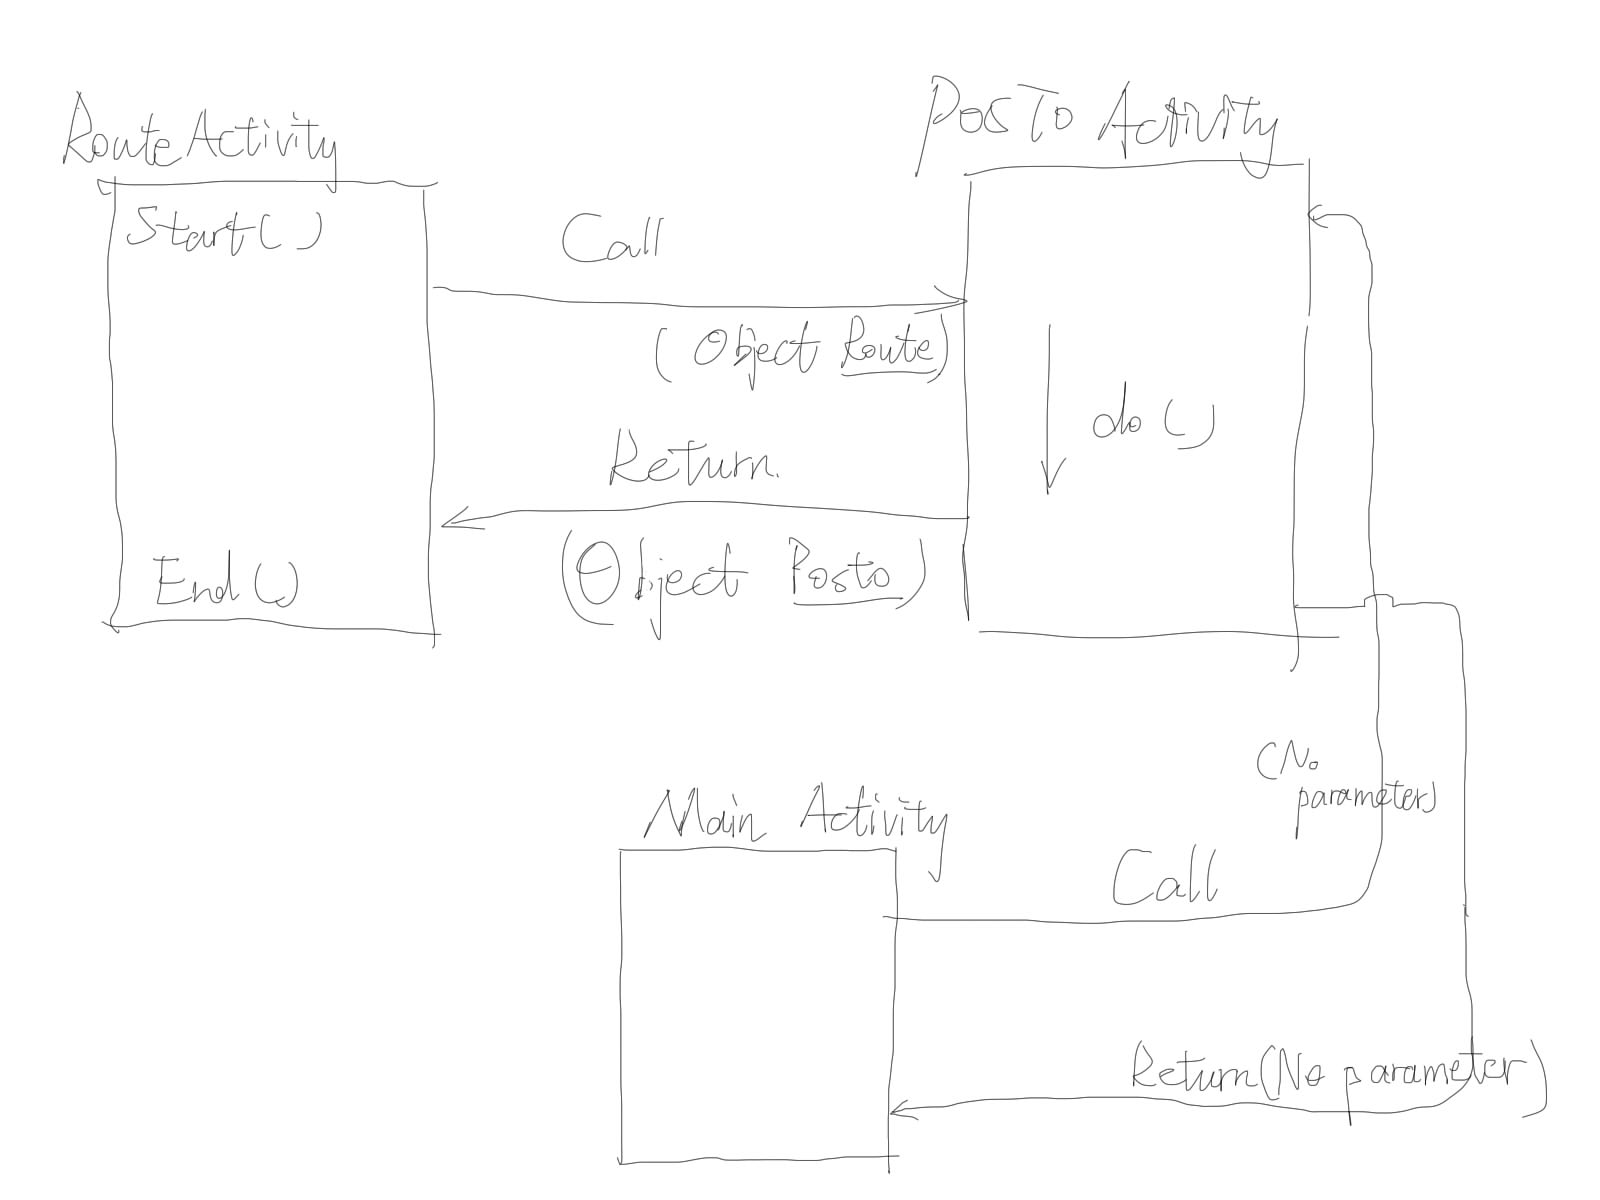 Route Activity
Start()
End()
Call
(Object Route)
Return.
(Object Posto)
Posto Activity
do()
Main Activity
(No
parameter)
Call
Return(No parameter)